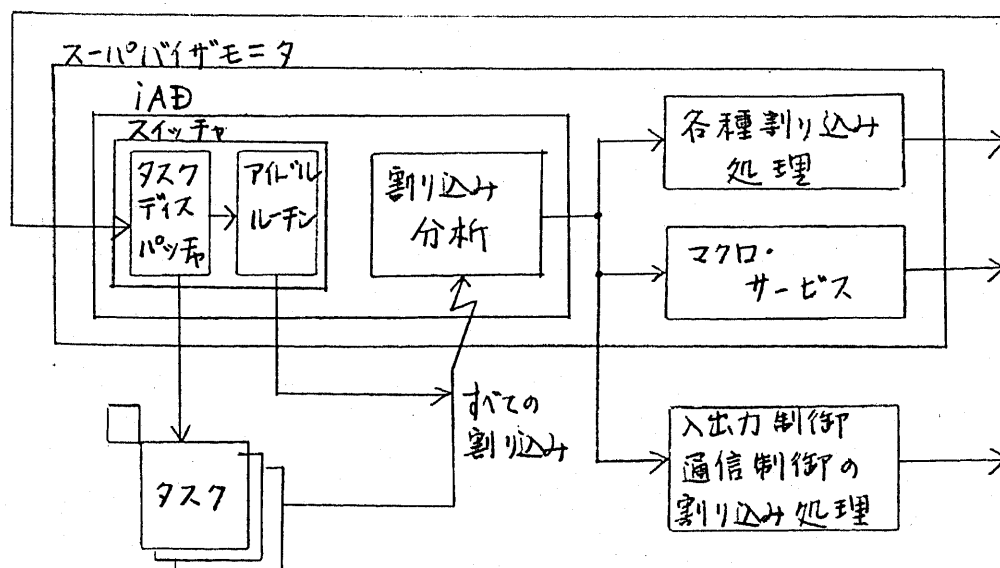 スーパバイザモニタ
iAD
スイッチャ
タスク
ディス
パッチャ
アイドル
ルーチン
割り込み
分析
各種割り込み
処理
マクロ・
サービス
すべての
割り込み
タスク
入出力制御
通信制御の
割り込み処理